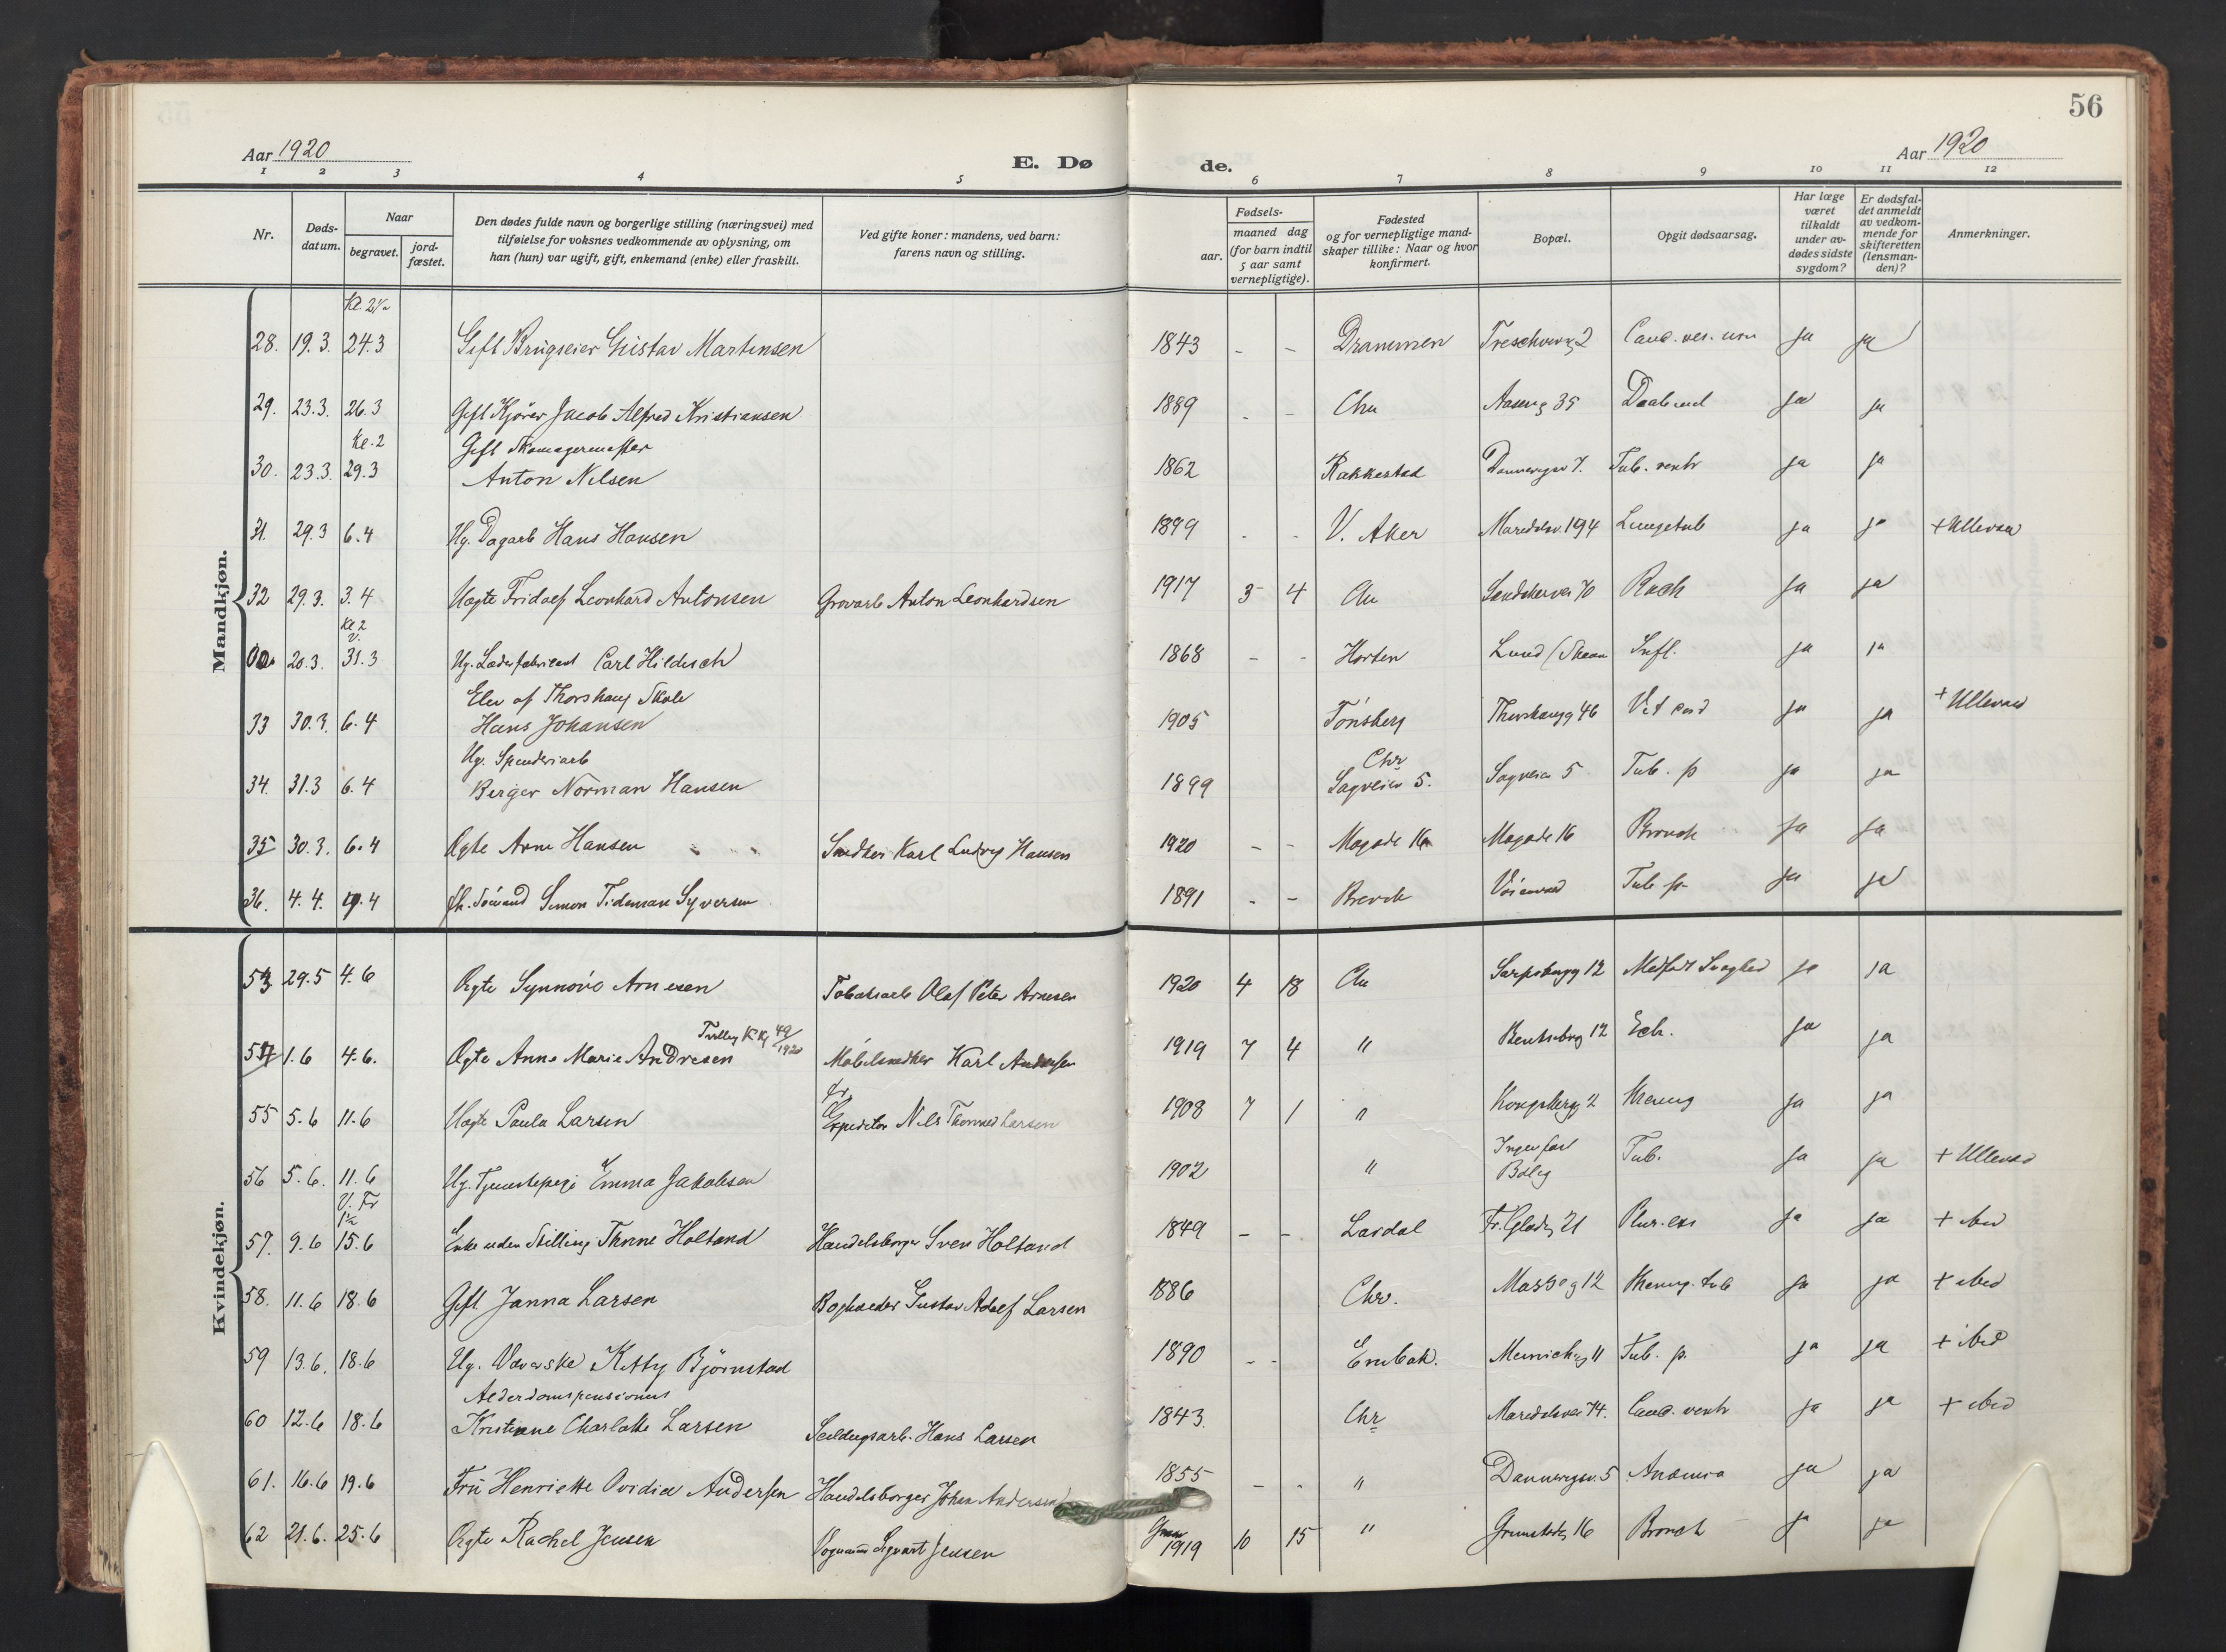 56
Aar 1920
E. Dø de.
Aar 1920
1 2 3 4 5 6 7 8 9 10 11 12
Nr.
Døds-datum.
Naar
begravet.
jord-fæstet.
Den dødes fulde navn og borgerlige stilling (næringsvei) med
tilføielse for voksnes vedkommende av oplysning, om
han (hun) var ugift, gift, enkemand (enke) eller fraskilt.
Ved gifte koner: mandens, ved barn:
farens navn og stilling.
Fødsels-
aar.
maaned dag
(for barn indtil
5 aar samt
vernepligtige).
Fødested
og for vernepligtige mand-
skaper tillike: Naar og hvor
konfirmert.
Bopæl.
Opgit dødsaarsag.
Har læge
været
tilkaldt
under av-
dødes sidste
sygdom?
Er dødsfal-
det anmeldt
av vedkom-
mende for
skifteretten
(lensman-
den)?
Anmerkninger.
Mandkjøn.
Kl. 2½
28. 19.3. 24.3 Gift Brugseier Gustav Martinsen 1843 - - Drammen 2 ja ja
29. 23.3. 26.3 Gift Kjører Jacob Alfred Kristiansen 1889 - - Chra Aaseng 35 ja ja
Kl. 2 Gift Skomagermester
30. 23.3. 29.3 Anton Nilsen 1862 Rakkestad Dannevigsv 7. Tub. ventr ja ja
31. 29.3 6.4 Ug. Dagarb Hans Hansen 1899 - - V. Aker Maridalsv. 194 Lungetub ja ja + Ullevaal
32 29.3. 3.4 Uægte Fridolf Leonhard Antonsen Grovarb Anton Leonhardsen 1917 3 4 Chr Sandakerver 70 Rach ja ja
Kl 2
V.
20.3. 31.3 Ug. Læderfabrikant Carl Hildisch 1868 - - Horten Lund (Skaan Infl. ja ja
Elev af Thorshaug Skole
33 30.3. 6.4 Hans Johansen 1905 Tønsberg Thorshaugg 46 Vit cord ja ja + Ullevaal
Ug. Spinderiarb Chr
34. 31.3 6.4 Berger Norman Hansen 1899 Sagveien 5. Sagveien 5 Tub. p ja ja
35 30.3. 6.4 Ægte Arne Hansen Snedker Karl Ludvig Hansen 1920 - - Mogade 16 Mogade 16 Bronch ja ja
36. 4.4. 19.4 fh. Sømand Simon Tideman Syversen 1891 - - Brevik Tub p. ja ja
Kvindekjøn.
53 29.5 4.6 Ægte Synnøve Arnesen Tobaksarb Olaf Peter Arnesen 1920 4 18 Chr Sarpsborgg 12 Medfødt Svaghed ja ja
Tvilling K.Kj 49/1920
54 1.6 4.6. Ægte Anne Marie Andresen Møbelsnedker Karl Andresen 1919 7 4 " Bentsebrg 12 Ech. ja ja
fr.
55 5.6 11.6 Uægte Paula Larsen Expeditør Nils Thorvald Larsen 1908 7 1 " Kongsbergg 2 Mening ja ja
56 5.6. 11.6 Ug. Tjenestepige Emma Jakobsen 1902 " Ingen fast Bolig Tub. ja ja + Ullevaal
V. Fr
1½
57. 9.6 15.6 Enke uden Stilling Thrine Holtand Handelsborger Sven Holtand 1849 - - Lardal Fr. Glads g 21 Plur. ja ja + ibid
58. 11.6 18.6 Gift Janna Larsen Boghandler Gustav Adolf Larsen 1886 Chr. 12 Mening. tub ja ja + ibid
59 13.6. 18.6 Ug. Væverske Kitty Bjørnstad 1890 - - Enebak. 11 Tub. p. ja ja + ibid
Alderdomspensionist
60 12.6 18.6 Kristiane Charlotte Larsen Seildugsarb. Hans Larsen 1843. Chr Maridalsvei 74. Canc. ventr ja ja + ibid
61. 16.6 19.6 Fru Henriette Ovidia Andersen Handelsborger Johan Andersen 1855 - - " Dannevigsv. 5 Anæmia ja ja
62 21.6. 25.6 Ægte Rachel Jensen Vognmand Sigvart Jensen 1919 10 15 " Grimstadg 16 Bronch ja ja